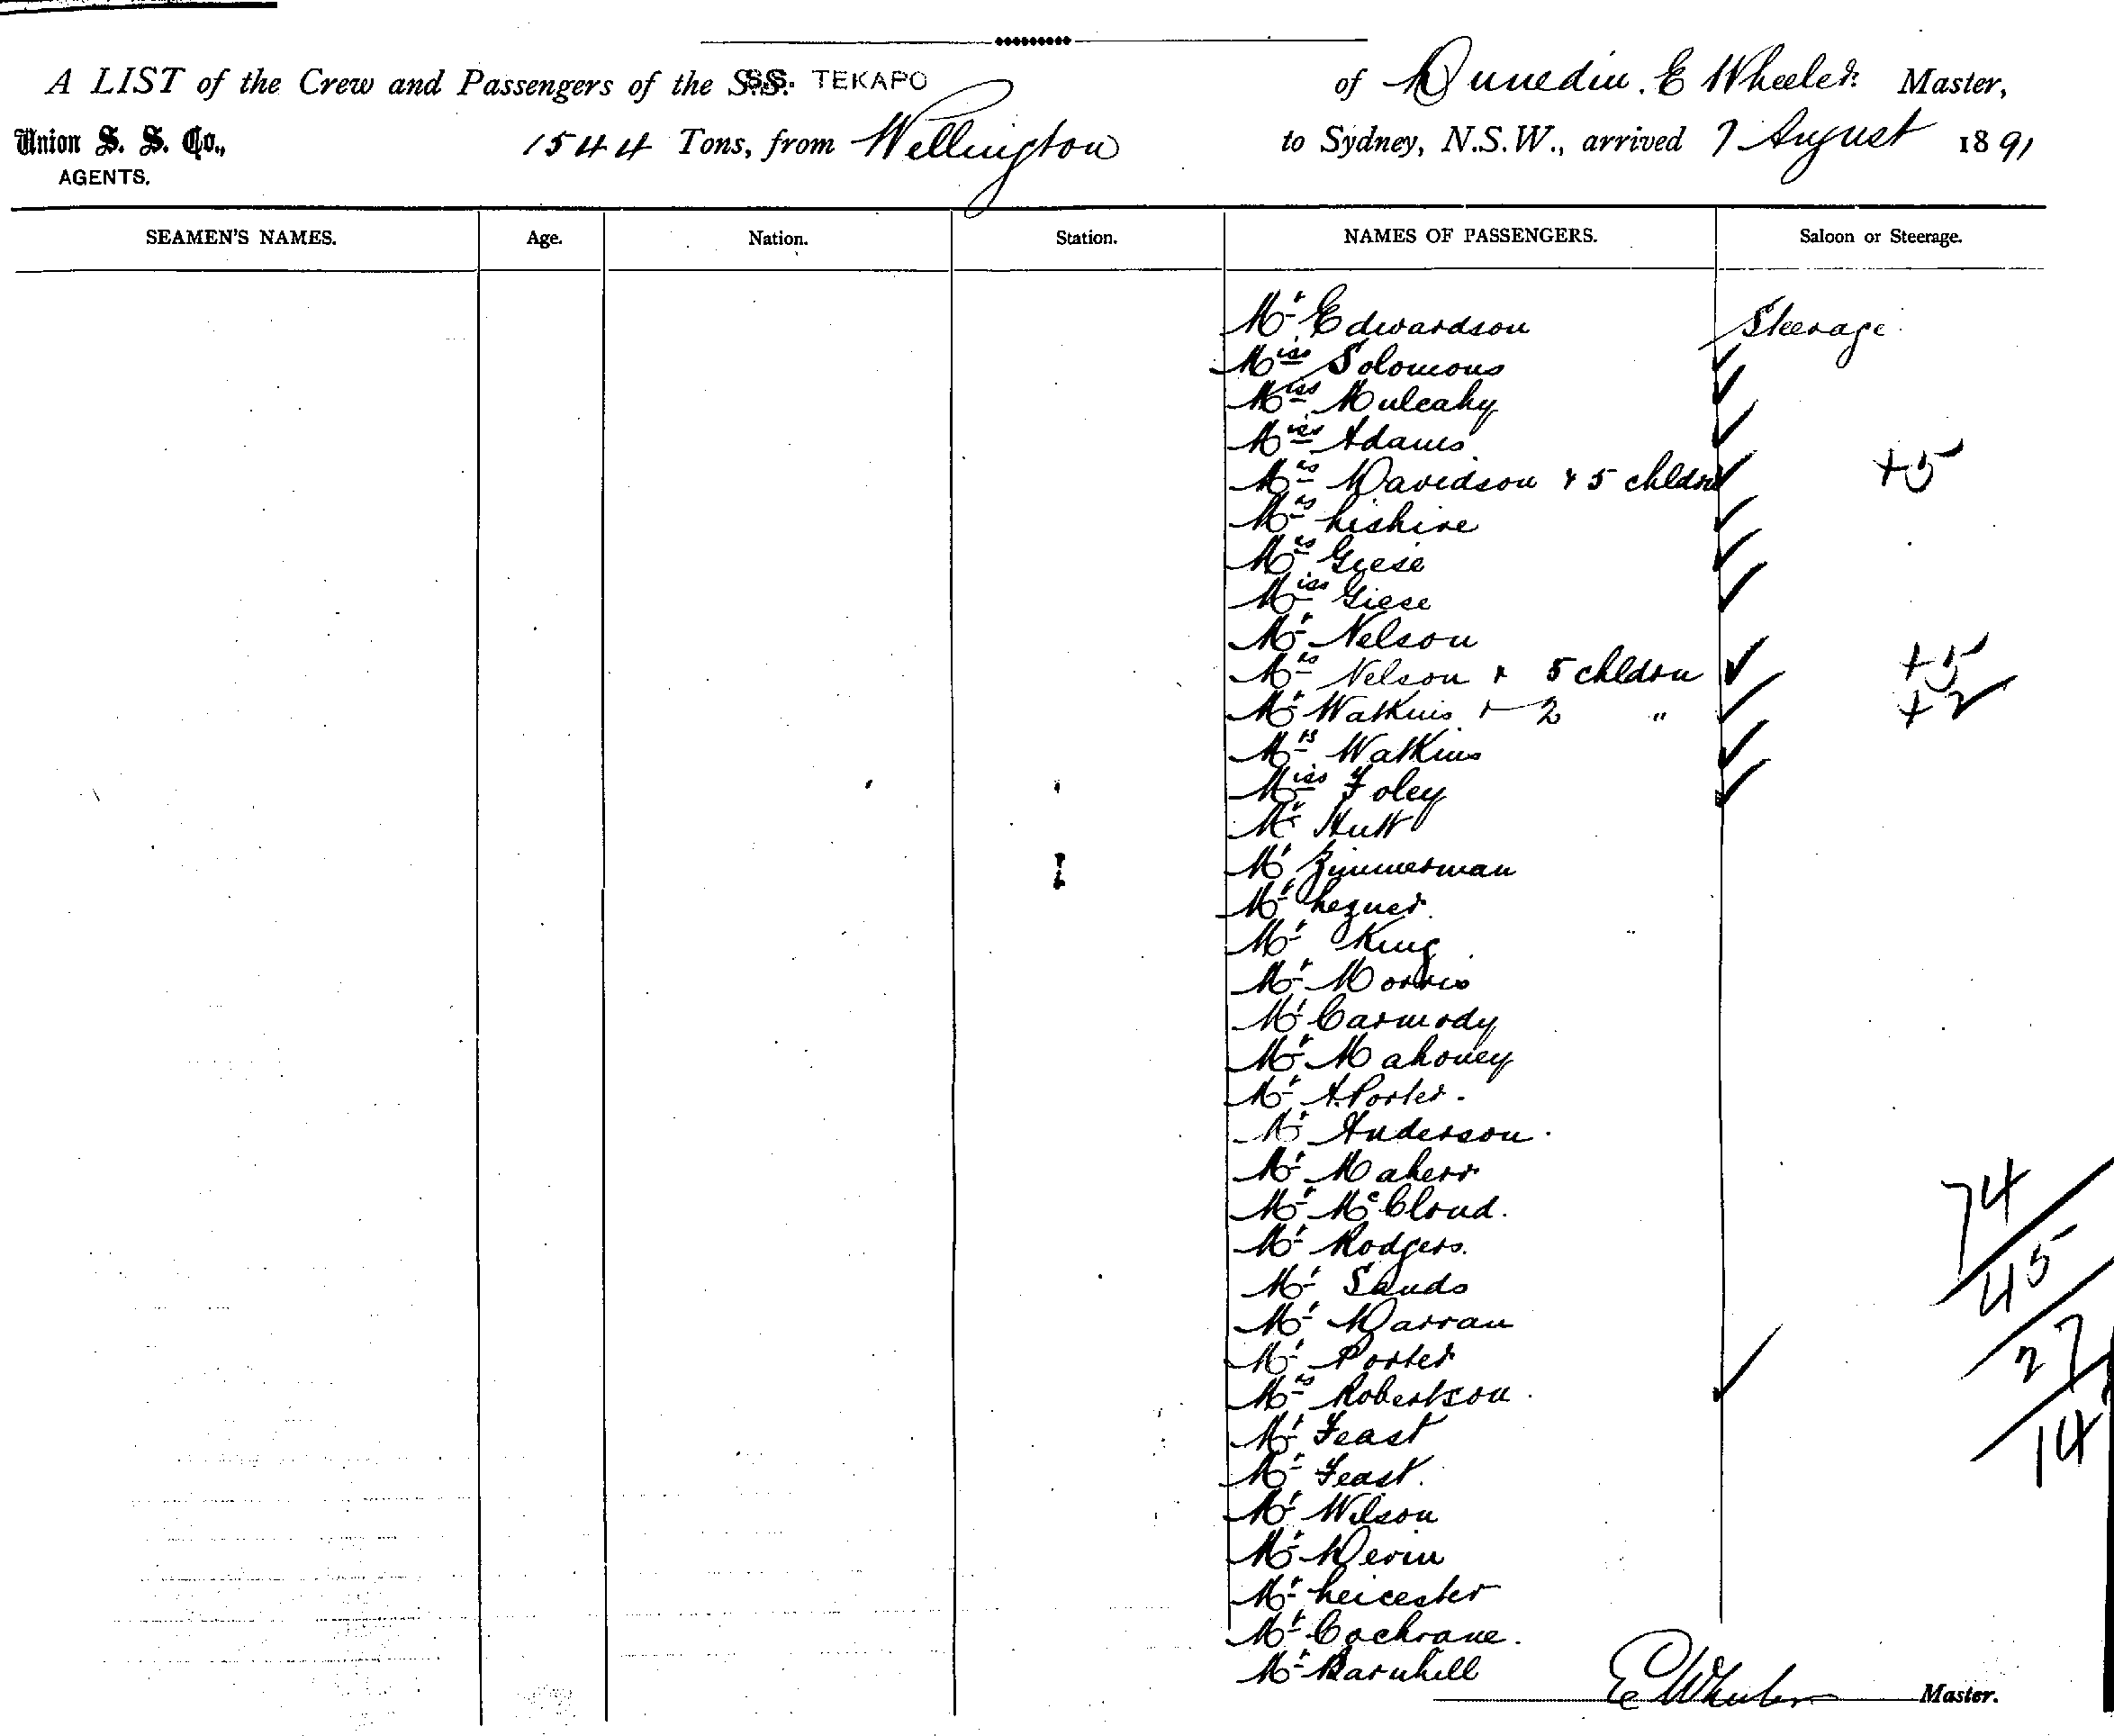 A LIST of the Crew and Passengers of the S.S. S.S. TEKAPO of Dunedin. E Wheeler Master,
Union S. S. Co., 1544 Tons, from Wellington to Sydney, N.S.W., arrived 7 August 1891
AGENTS.
SEAMEN'S NAMES. Age. Nation. Station. NAMES OF PASSENGERS. Saloon or Steerage.
Mr Edwardson Steerage
Miss Solomons
Miss Mulcahy
Miss Adams
Mrs Davidson & 5 chldn +5
Mrs
Mrs Giese
Miss Giese
Mr Nelson
Mrs Nelson & 5 chldrn +5
Mr Watkins & 2 " +2
Mrs Watkins
Miss Foley
Mr Hutt
Mr Zimmerman
Mr
Mr King
Mr Morris
Mr Carmody
Mr Mahoney
Mr A. Porter.
Mr Anderson.
Mr Maherr
Mr McCloud.
Mr Rodgers.
Mr Sands
Mr Darran
Mr Porter
Mrs Robertson.
Mr Feast
Mr Feast.
Mr Wilson
Mr Devin
Mr Leicester
Mr Cochrane.
Mr Barnhill
74
45
27
14
E Wheeler Master.